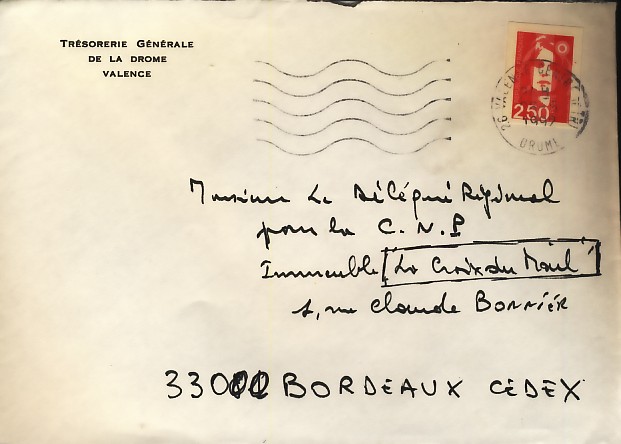 TRÉSORERIE GÉNÉRALE
DE LA DROME
VALENCE
2,50
26 VALENCE
DROME
Monsieur Le Délégué Régional
pour la C.N.P
Immeuble "La Croix du Mail"
1, rue Claude BONNIER
33000 BORDEAUX CEDEX